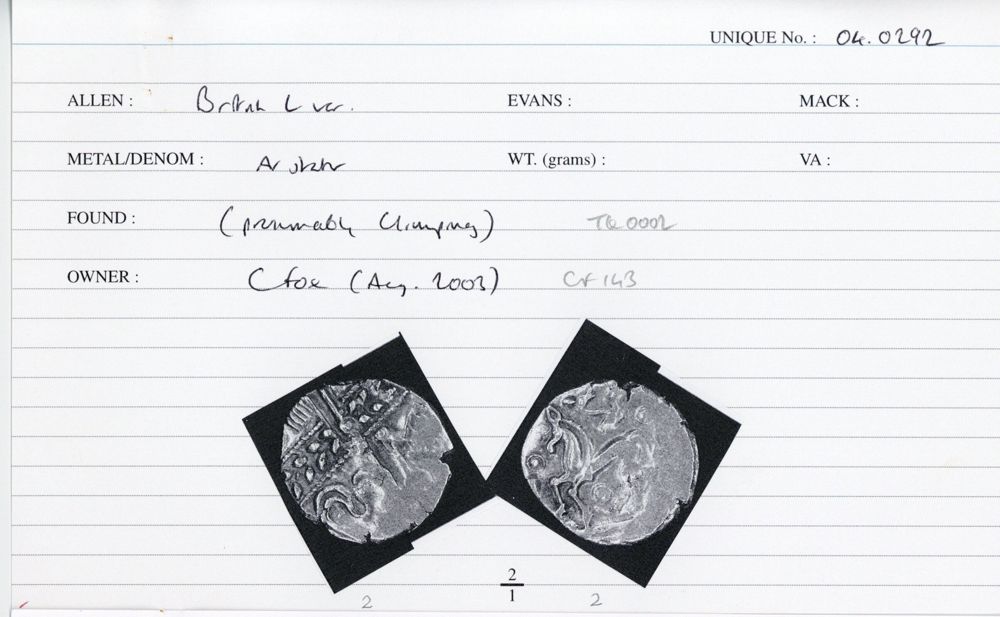 UNIQUE No. : 04.0292
ALLEN : British L var. EVANS : MACK :
METAL/DENOM : Ar stater WT. (grams) : VA :
FOUND : (presumably Climping) TQ 0002
OWNER : C Fox (Aug. 2003) CF 143
2
1
2 2